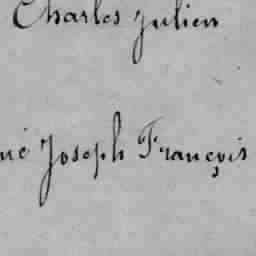 Charles Julien
né Joseph François